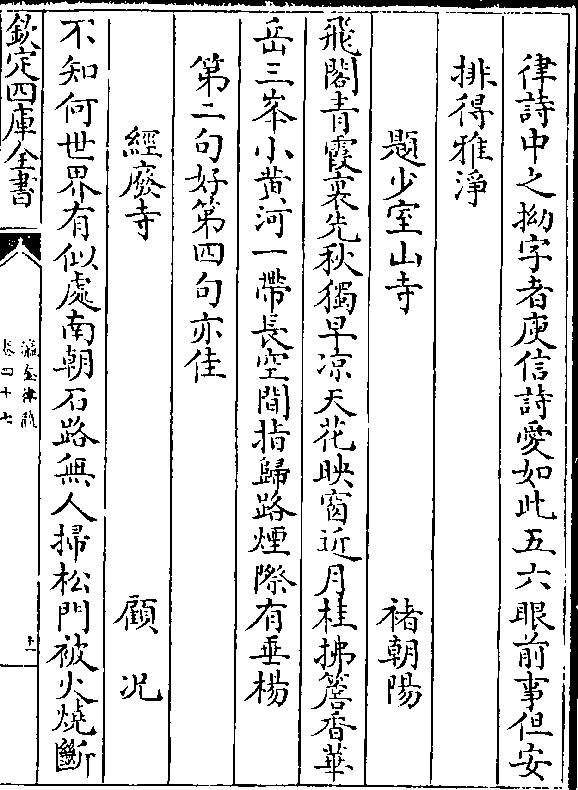 律詩中之拗字者庾信詩愛如此五六眼前事但安
排得雅淨
題少室山寺 褚朝陽
飛閣青霞裏先秋獨早凉天花映窗近月桂拂簷香華
岳三峯小黄河一帶長空間指歸路煙際有垂楊
第二句好第四句亦佳
經廢寺 顧況
不知何世界有似處南朝石路無人掃松門被火燒斷
欽定四庫全書
瀛奎律髓
卷四十七
十一